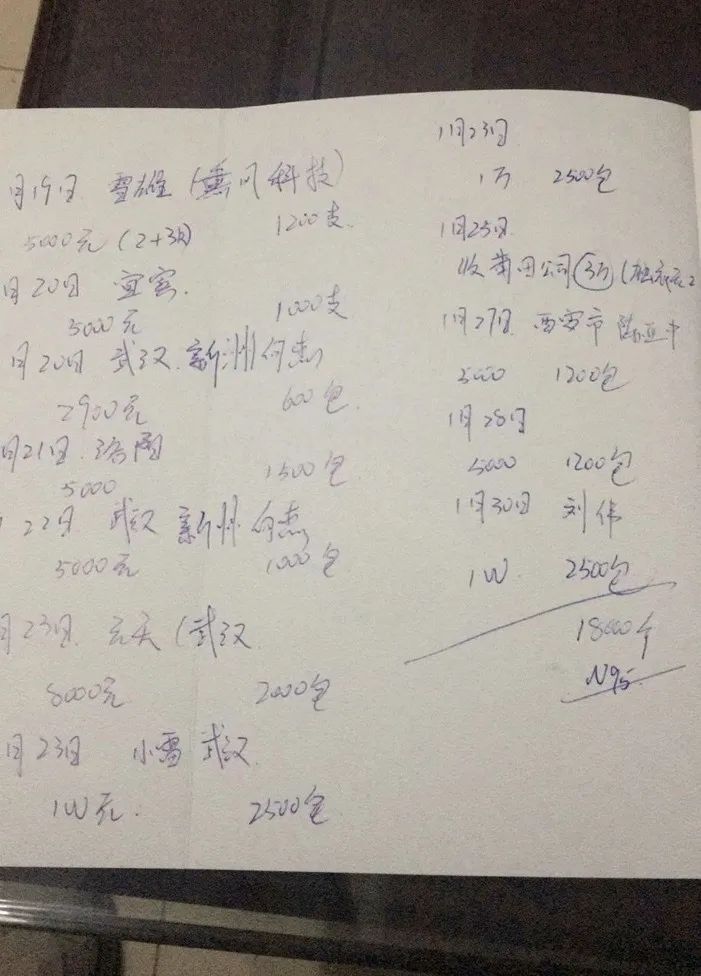 月19日 雪雄 ( 风科技)
5000元 (2+3) 1200支
月20日 宜宾.
5000元 1000支
月20日 武汉 新洲 何杰
2900元 600包
月21日 洛阳
5000 1500包
22日 武汉 新洲 何杰
5000元 1000包
月23日 (武汉
8000元 2000包
月23日 小雪 武汉
1W元. 2500包
1月23日
1万 2500包
1月25日
收莆田公司 3万
1月27日 西安市
5000 1200包
1月28日
5000 1200包
1月30日 刘伟
1W. 2500包
18000个
N95.